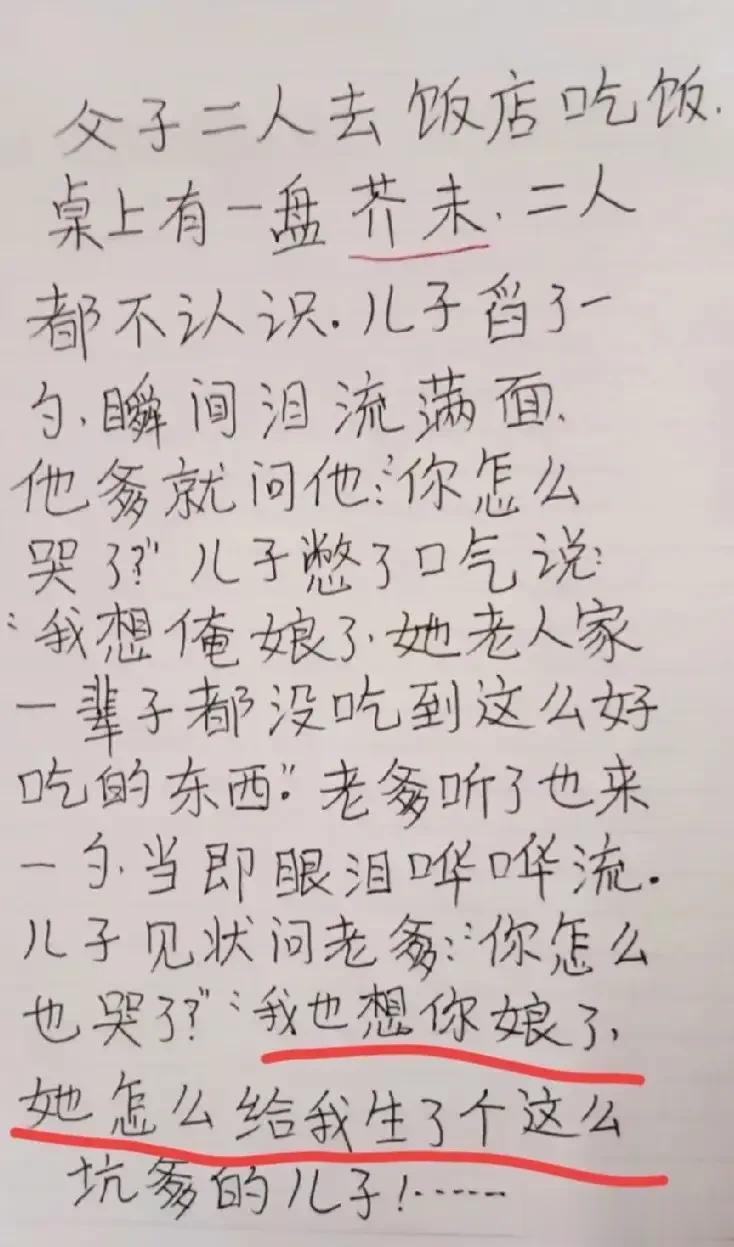 父子二人去饭店吃饭.
桌上有一盘芥未.二人
都不认识.儿子舀了一
勺.瞬间泪流满面.
他爹就问他:"你怎么
哭了?"儿子憋了口气说:
"我想俺娘了.她老人家
一辈子都没吃到这么好
吃的东西."老爹听了也来
一勺.当即眼泪哗哗流.
儿子见状问老爹:"你怎么
也哭了?":我也想你娘了,
她怎么给我生了个这么
坑爹的儿子!......